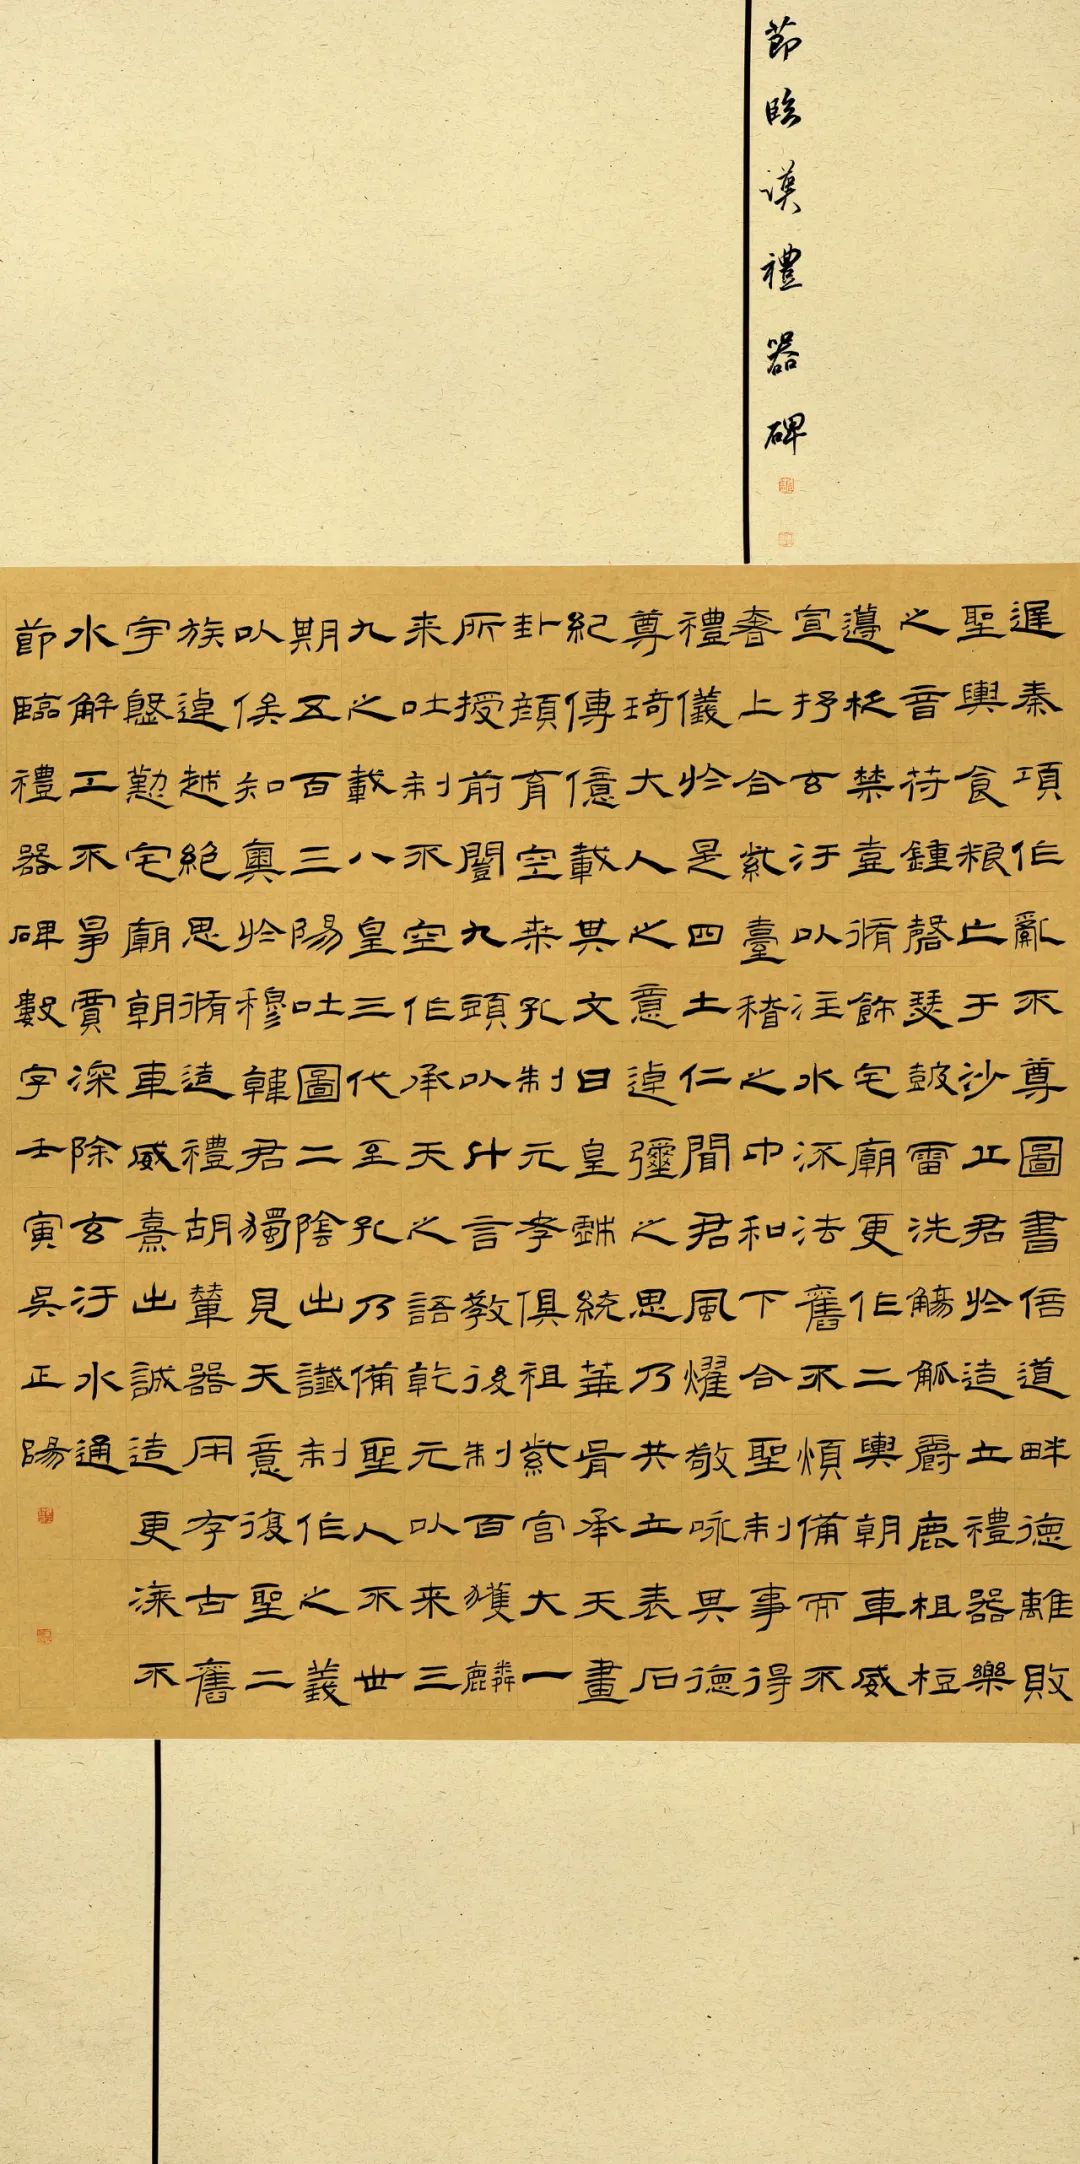 節臨漢禮器碑
遟秦項作亂不尊圖書倍道畔德離敗
聖輿食粮亡于沙丘君於造立禮器樂
之音苻鍾磬瑟鼓雷洗觴觚爵鹿柤梪
籩柉禁壺脩飾宅廟更作二輿朝車威
宣抒玄汙以注水流法舊不煩備而不
奢上合紫臺稽之中和下合聖制事得
禮儀於是四土仁聞君風燿敬咏其德
尊琦大人之意逴彌之思乃共立表石
紀傳億載其文曰皇戲統華胥承天畫
卦顏育空桒孔制元孝俱祖紫宮大一
所授前闓九頭以什言教後制百獲麟
来吐制不空作承天之語乾元以来三
九之載八皇三代至孔乃備聖人不世
期五百三陽吐圖二陰出讖制作之義
以俟知奧於穆韓君獨見天意復聖二
族逴越絕思脩造禮胡輦器用存古舊
宇慇懃宅廟朝車威熹出誠造更漆不
水解工不爭賈深除玄汙水通
節臨禮器碑數字壬寅吳正陽